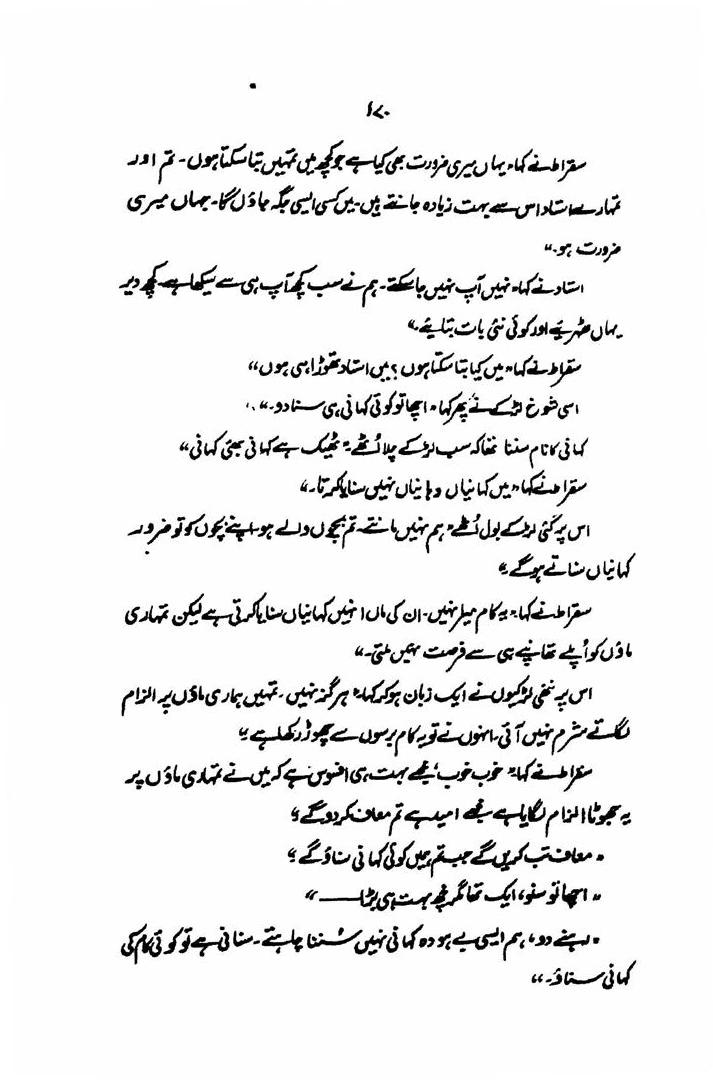 ۱۷۰
سقراط نے کہا "یہاں میری ضرورت بھی کیا ہے جو کچھ میں تمہیں بتا سکتا ہوں۔ تم اور
تمہارے استاد اس سے بہت زیادہ جانتے ہیں۔ میں کسی ایسی جگہ جاؤں گا۔ جہاں میری
ضرورت ہو۔"
استاد نے کہا "نہیں آپ نہیں جا سکتے۔ ہم نے سب کچھ آپ ہی سے سیکھا ہے۔ کچھ دیر
یہاں ٹھہریئے اور کوئی نئی بات بتایئے۔"
سقراط نے کہا "میں کیا بتا سکتا ہوں؟ میں استاد تھوڑا ہی ہوں"
اسی شوخ لڑکے نے پھر کہا "اچھا تو کوئی کہانی ہی سنا دو۔"
کہانی کا نام سننا تھا کہ سب لڑکے چلا اُٹھے "ٹھیک ہے کہانی بھئی کہانی"
سقراط نے کہا "میں کہانیاں وہانیاں نہیں سنایا کرتا۔"
اس پر کئی لڑکے بول اُٹھے "ہم نہیں مانتے۔ تم بچوں والے ہو۔ اپنے بچوں کو تو ضرور
کہانیاں سناتے ہوگے"
سقراط نے کہا "یہ کام میرا نہیں۔ ان کی ماں انہیں کہانیاں سنایا کرتی ہے لیکن تمہاری
ماؤں کو اُپلے تھاپنے ہی سے فرصت نہیں ملتی۔"
اس پر ننھی لڑکیوں نے ایک زبان ہو کر کہا "ہرگز نہیں۔ تمہیں ہماری ماؤں پر الزام
لگاتے شرم نہیں آتی۔ انہوں نے تو یہ کام برسوں سے چھوڑ رکھا ہے"
سقراط نے کہا "خوب خوب مجھے بہت ہی افسوس ہے کہ میں نے تمہاری ماؤں پر
یہ جھوٹا الزام لگایا ہے مجھے امید ہے تم معاف کر دو گے"
"معاف تب کریں گے جب تم ہمیں کوئی کہانی سناؤ گے"
"اچھا تو سنو، ایک تھا مگرمچھ بہت ہی بڑا——"
"رہنے دو، ہم ایسی بے ہودہ کہانی نہیں سُننا چاہتے۔ سنانی ہے تو کوئی کام کی
کہانی سناؤ۔"